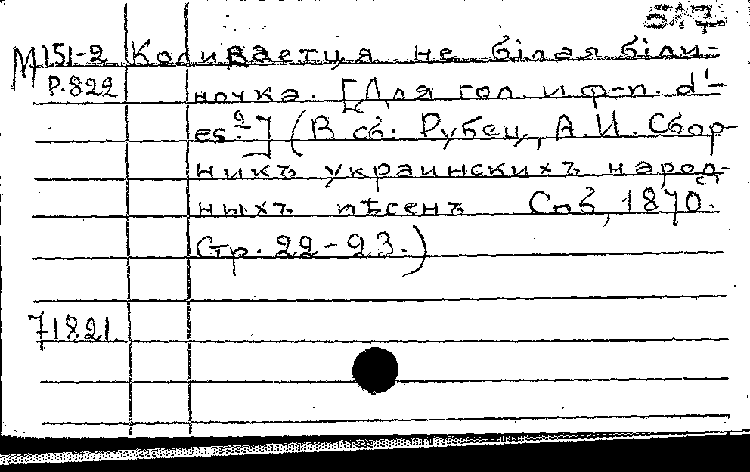 М 151-2 Коливается не бiлая бiли-
Р.822 ночка. [Для гол. и ф-п. d'-
es²] (В сб: Рубец, А.И. Сбор-
никъ украинскихъ народ-
ныхъ пѣсенъ Спб, 1870.
Стр. 22-23.)
71821